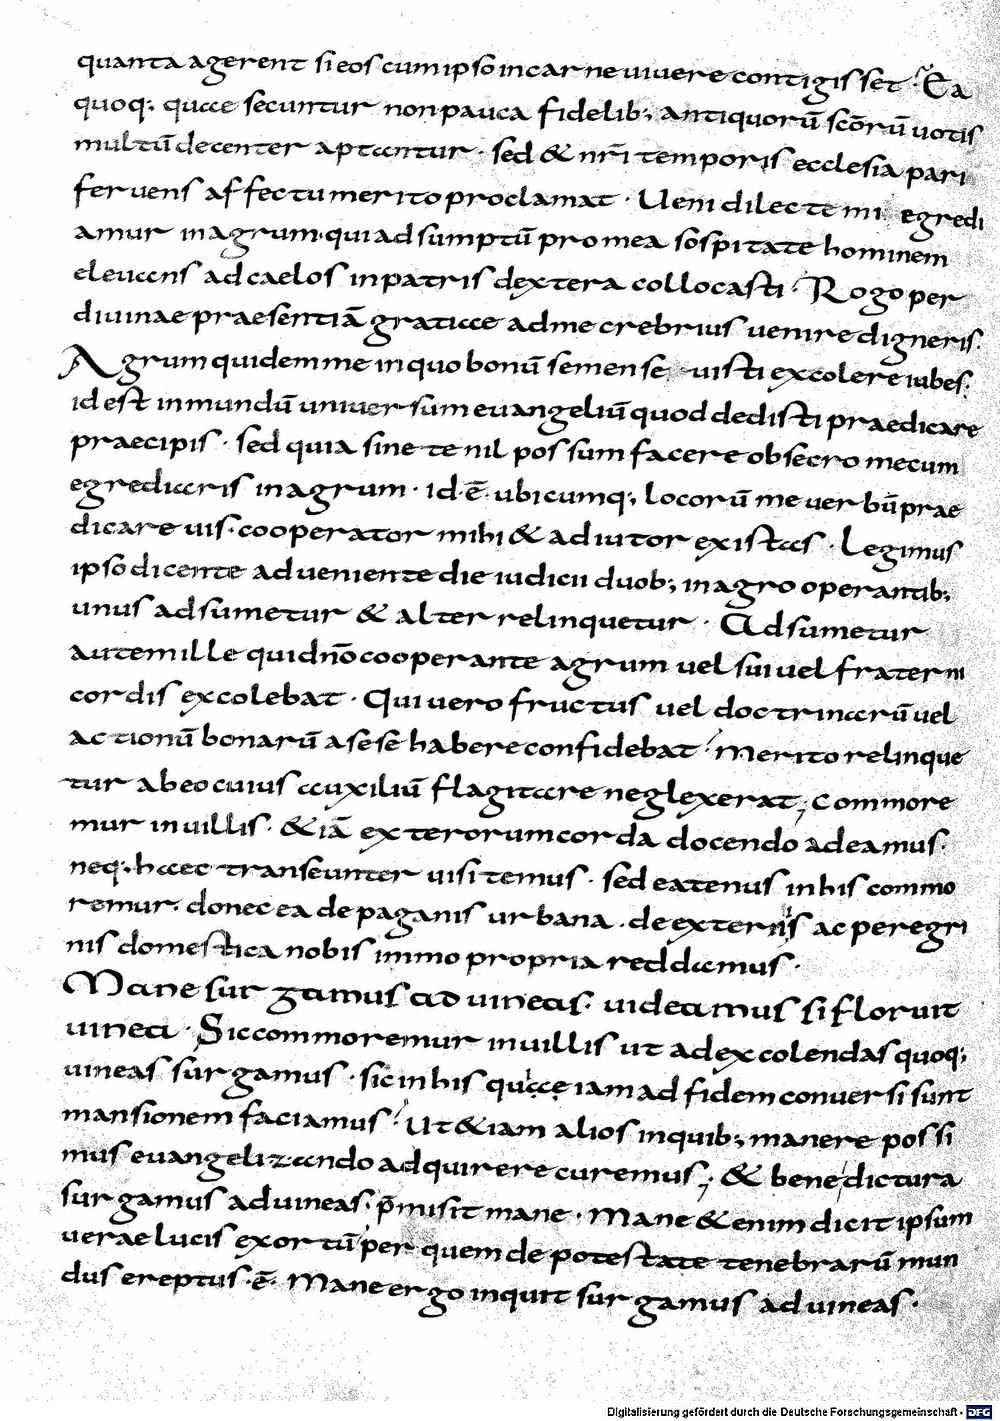 quanta agerent si eos cum ipso in carne vivere contigisset · Ea
quoq; quae secuntur non pauca fidelib; antiquorū scōrū votis
multū decenter aptantur · sed & nr̄i temporis ecclesia pari
fervens affectu merito proclamat · Veni dilecte mi egredi
amur in agrum · qui adsumptū pro mea sospitate hominem
elevans ad caelos in patris dextera collocasti · Rogo per
divinae praesentiā gratiae ad me crebrius venire digneris·
Agrum quidem me in quo bonū semen se visti excolere iubes·
id est in mundū universum evangeliū quod dedisti praedicare
praecipis · sed quia sine te nil possum facere obsecro mecum
egrediaris in agrum · id·ē· ubicumq; locorū me verbū prae
dicare vis · cooperator mihi & adiutor existas · Legimus
ipso dicente adveniente die iudicii duob; in agro operantib;
unus adsumetur & alter relinquetur · Adsumetur
autem ille qui dn̄o cooperante agrum vel sui vel fraterni
cordis excolebat · Qui vero fructus vel doctrinarū vel
actionū bonarū a sese habere confidebat · Merito relinque
tur ab eo cuius auxiliū flagitare neglexerat; Commore
mur in villis · &iā exterorum corda docendo adeamus·
neq; haec transeunter visitemus · sed eatenus in his commo
remur · donec ea de paganis urbana · de externis ac peregri
nis domestica nobis immo propria reddamus ·
Mane surgamus ad vineas · videamus si floruit
vinea · Sic commoremur in villis ut ad excolendas quoq;
vineas surgamus · sic in his quae iam ad fidem conversi sunt
mansionem faciamus · Ut &iam alios in quib; manere possi
mus evangelizando adquirere curemus; & bene dictura
surgamus ad vineas · p̄misit mane · Mane &enim dicit ipsum
verae lucis exortū per quem de potestate tenebrarū mun
dus ereptus ·ē· Mane ergo inquit surgamus ad vineas ·
Digitalisierung gefördert durch die Deutsche Forschungsgemeinschaft - DFG